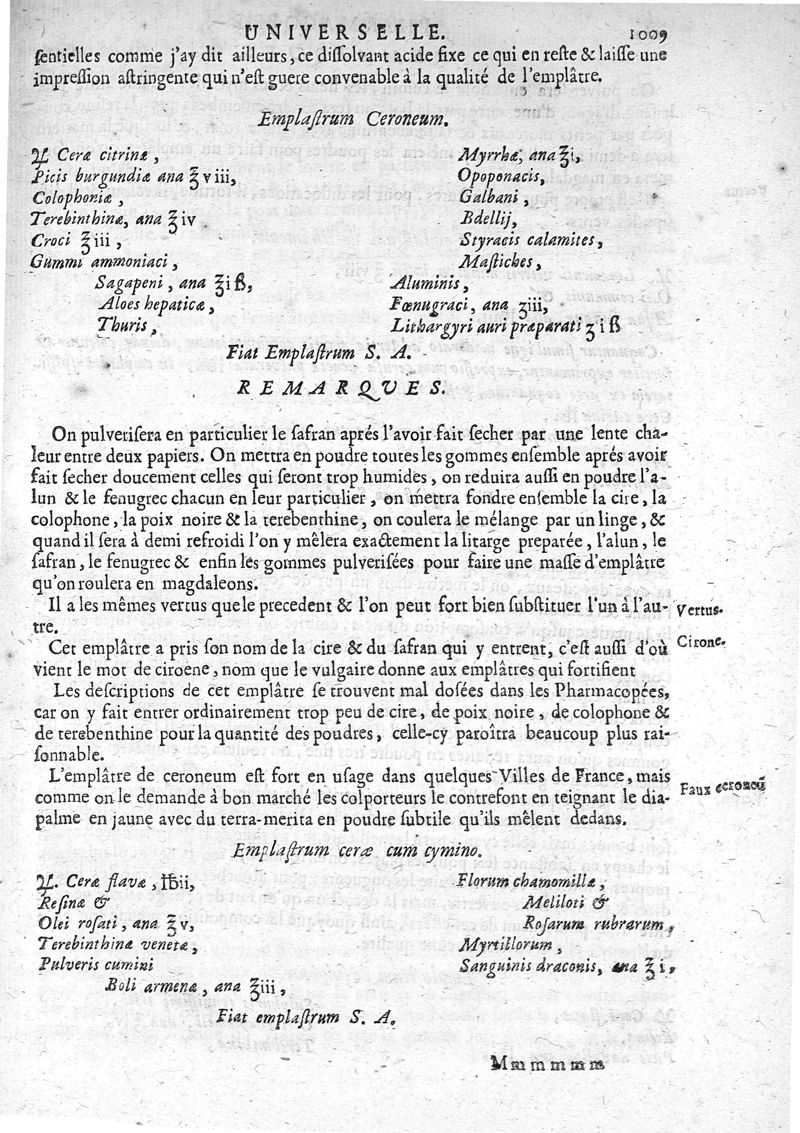 UNIVERSELLE. 1009
sentielles comme j'ay dit ailleurs, ce dissolvant acide fixe ce qui en reste & laisse une
impression astringente qui n'est guere convenable à la qualité de l'emplâtre.
Emplastrum Ceroneum.
℞ Ceræ citrinæ,
Picis burgundiæ ana ℥viii,
Colophoniæ,
Terebinthinæ, ana ℥iv
Croci ℥iii,
Gummi ammoniaci,
Sagapeni, ana ℥i ß,
Aloes hepaticæ,
Thuris,
Myrrhæ, ana ℥i,
Opoponacis,
Galbani,
Bdellij,
Styracis calamites,
Mastiches,
Aluminis,
Fœnugraci, ana ʒiii,
Lithargyri auri præparati ʒi ß
Fiat Emplastrum S. A.
REMARQUES.
On pulverisera en particulier le safran aprés l'avoir fait secher par une lente cha-
leur entre deux papiers. On mettra en poudre toutes les gommes ensemble aprés avoir
fait secher doucement celles qui seront trop humides, on reduira aussi en poudre l'a-
lun & le fenugrec chacun en leur particulier, on mettra fondre ensemble la cire, la
colophone, la poix noire & la terebenthine, on coulera le mélange par un linge, &
quand il sera à demi refroidi l'on y mêlera exactement la litarge preparée, l'alun, le
safran, le fenugrec & enfin les gommes pulverisées pour faire une masse d'emplâtre
qu'on roulera en magdaleons.
Il a les mêmes vertus que le precedent & l'on peut fort bien substituer l'un à l'au-
tre.
Vertus.
Cet emplâtre a pris son nom de la cire & du safran qui y entrent, c'est aussi d'où
vient le mot de ciroëne, nom que le vulgaire donne aux emplâtres qui fortifient
Cirone.
Les descriptions de cet emplâtre se trouvent mal dosées dans les Pharmacopées,
car on y fait entrer ordinairement trop peu de cire, de poix noire, de colophone &
de terebenthine pour la quantité des poudres, celle-cy paroîtra beaucoup plus rai-
sonnable.
L'emplâtre de ceroneum est fort en usage dans quelques Villes de France, mais
comme on le demande à bon marché les colporteurs le contrefont en teignant le dia-
palme en jaune avec du terra-merita en poudre subtile qu'ils mêlent dedans.
Faux ceroneū
Emplastrum ceræ cum cymino.
℞. Ceræ flavæ, ℔ii,
Resinæ &
Olei rosati, ana ℥v,
Terebinthinæ venetæ,
Pulveris cumini
Boli armenæ, ana ℥iii,
Florum chamomillæ,
Meliloti &
Rosarum rubrarum,
Myrtillorum,
Sanguinis draconis, ana ℥i,
Fiat emplastrum S. A.
Mmmmmm